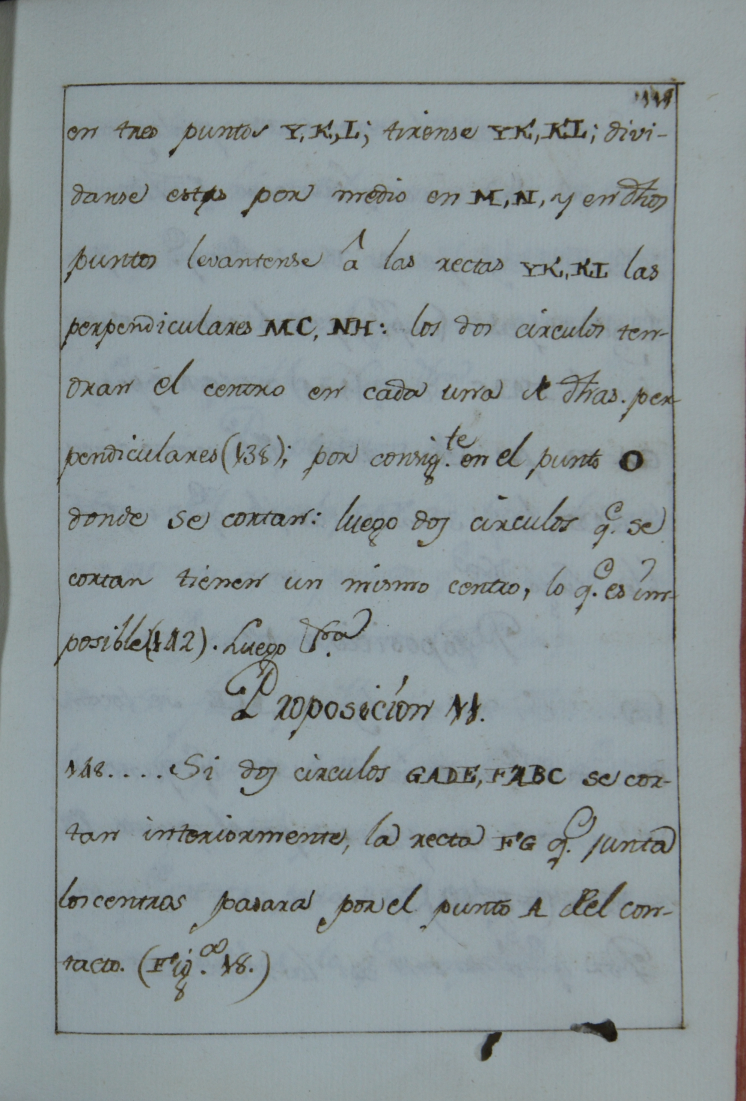 en tres puntos Y, K, L; tirense YK, KL; divi-
danse estas por medio en M, N, y en dhos
puntos levantense â las rectas YK, KL las
perpendiculares MC, NH: los dos circulos ten-
dran el centro en cada una de dhas. per-
pendiculares (138); por consig.te en el punto O
donde se cortan: luego dos circulos q.e se
cortan tienen un mismo centro, lo q.e es im-
posible (142). Luego &.a
Proposición 11.
148.... Si dos circulos GADE, FABC se cor-
tan interiormente, la recta FG q.e junta
los centros pasara por el punto A del con-
tacto. (Fig.a 18.)